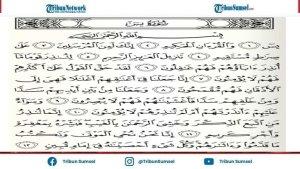 Tribun Network
Tribun Sumsel
سُورَةُ يسٓ
بِسْمِ ٱللَّهِ ٱلرَّحْمَٰنِ ٱلرَّحِيمِ
يسٓ ١ وَٱلْقُرْءَانِ ٱلْحَكِيمِ ٢ إِنَّكَ لَمِنَ ٱلْمُرْسَلِينَ ٣ عَلَىٰ
صِرَٰطٍ مُّسْتَقِيمٍ ٤ تَنزِيلَ ٱلْعَزِيزِ ٱلرَّحِيمِ ٥ لِتُنذِرَ قَوْمًا مَّآ أُنذِرَ
ءَابَآؤُهُمْ فَهُمْ غَٰفِلُونَ ٦ لَقَدْ حَقَّ ٱلْقَوْلُ عَلَىٰٓ أَكْثَرِهِمْ
فَهُمْ لَا يُؤْمِنُونَ ٧ إِنَّا جَعَلْنَا فِىٓ أَعْنَٰقِهِمْ أَغْلَٰلًا فَهِىَ إِلَى
ٱلْأَذْقَانِ فَهُم مُّقْمَحُونَ ٨ وَجَعَلْنَا مِنۢ بَيْنِ أَيْدِيهِمْ سَدًّا
وَمِنْ خَلْفِهِمْ سَدًّا فَأَغْشَيْنَٰهُمْ فَهُمْ لَا يُبْصِرُونَ ٩ وَسَوَآءٌ
عَلَيْهِمْ ءَأَنذَرْتَهُمْ أَمْ لَمْ تُنذِرْهُمْ لَا يُؤْمِنُونَ ١٠ إِنَّمَا تُنذِرُ
مَنِ ٱتَّبَعَ ٱلذِّكْرَ وَخَشِىَ ٱلرَّحْمَٰنَ بِٱلْغَيْبِ فَبَشِّرْهُ بِمَغْفِرَةٍ
وَأَجْرٍ كَرِيمٍ ١١ إِنَّا نَحْنُ نُحْىِ ٱلْمَوْتَىٰ وَنَكْتُبُ
مَا قَدَّمُوا۟ وَءَاثَٰرَهُمْ وَكُلَّ شَىْءٍ أَحْصَيْنَٰهُ فِىٓ إِمَامٍ مُّبِينٍ ١٢
Tribun Sumsel @TribunSumsel Tribun Sumsel